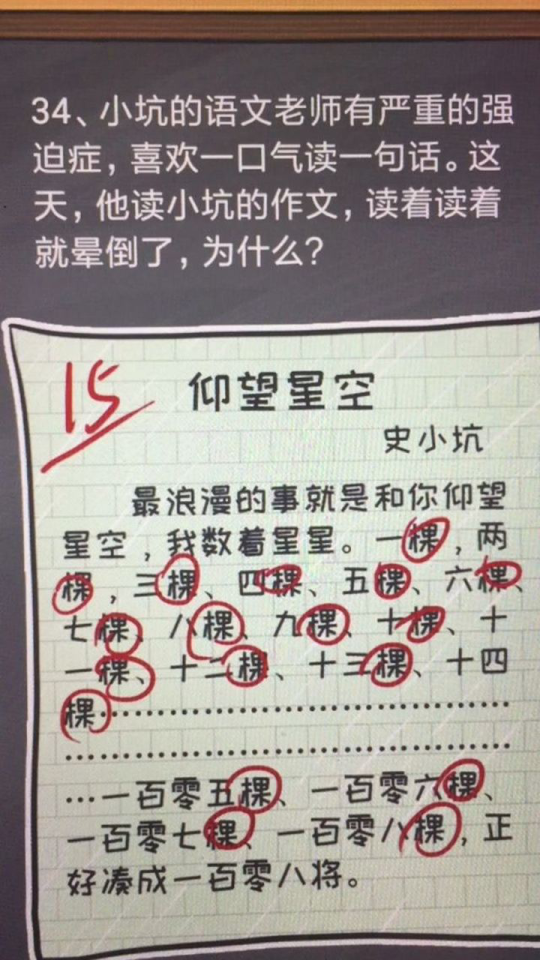 34、小坑的语文老师有严重的强
迫症，喜欢一口气读一句话。这
天，他读小坑的作文，读着读着
就晕倒了，为什么？
15
仰望星空
史小坑
最浪漫的事就是和你仰望
星空，我数着星星。一棵，两
棵，三棵、四棵、五棵、六棵、
七棵、八棵、九棵、十棵、十
一棵、十二棵、十三棵、十四
棵………………………………
………………………………
…一百零五棵、一百零六棵、
一百零七棵、一百零八棵，正
好凑成一百零八将。